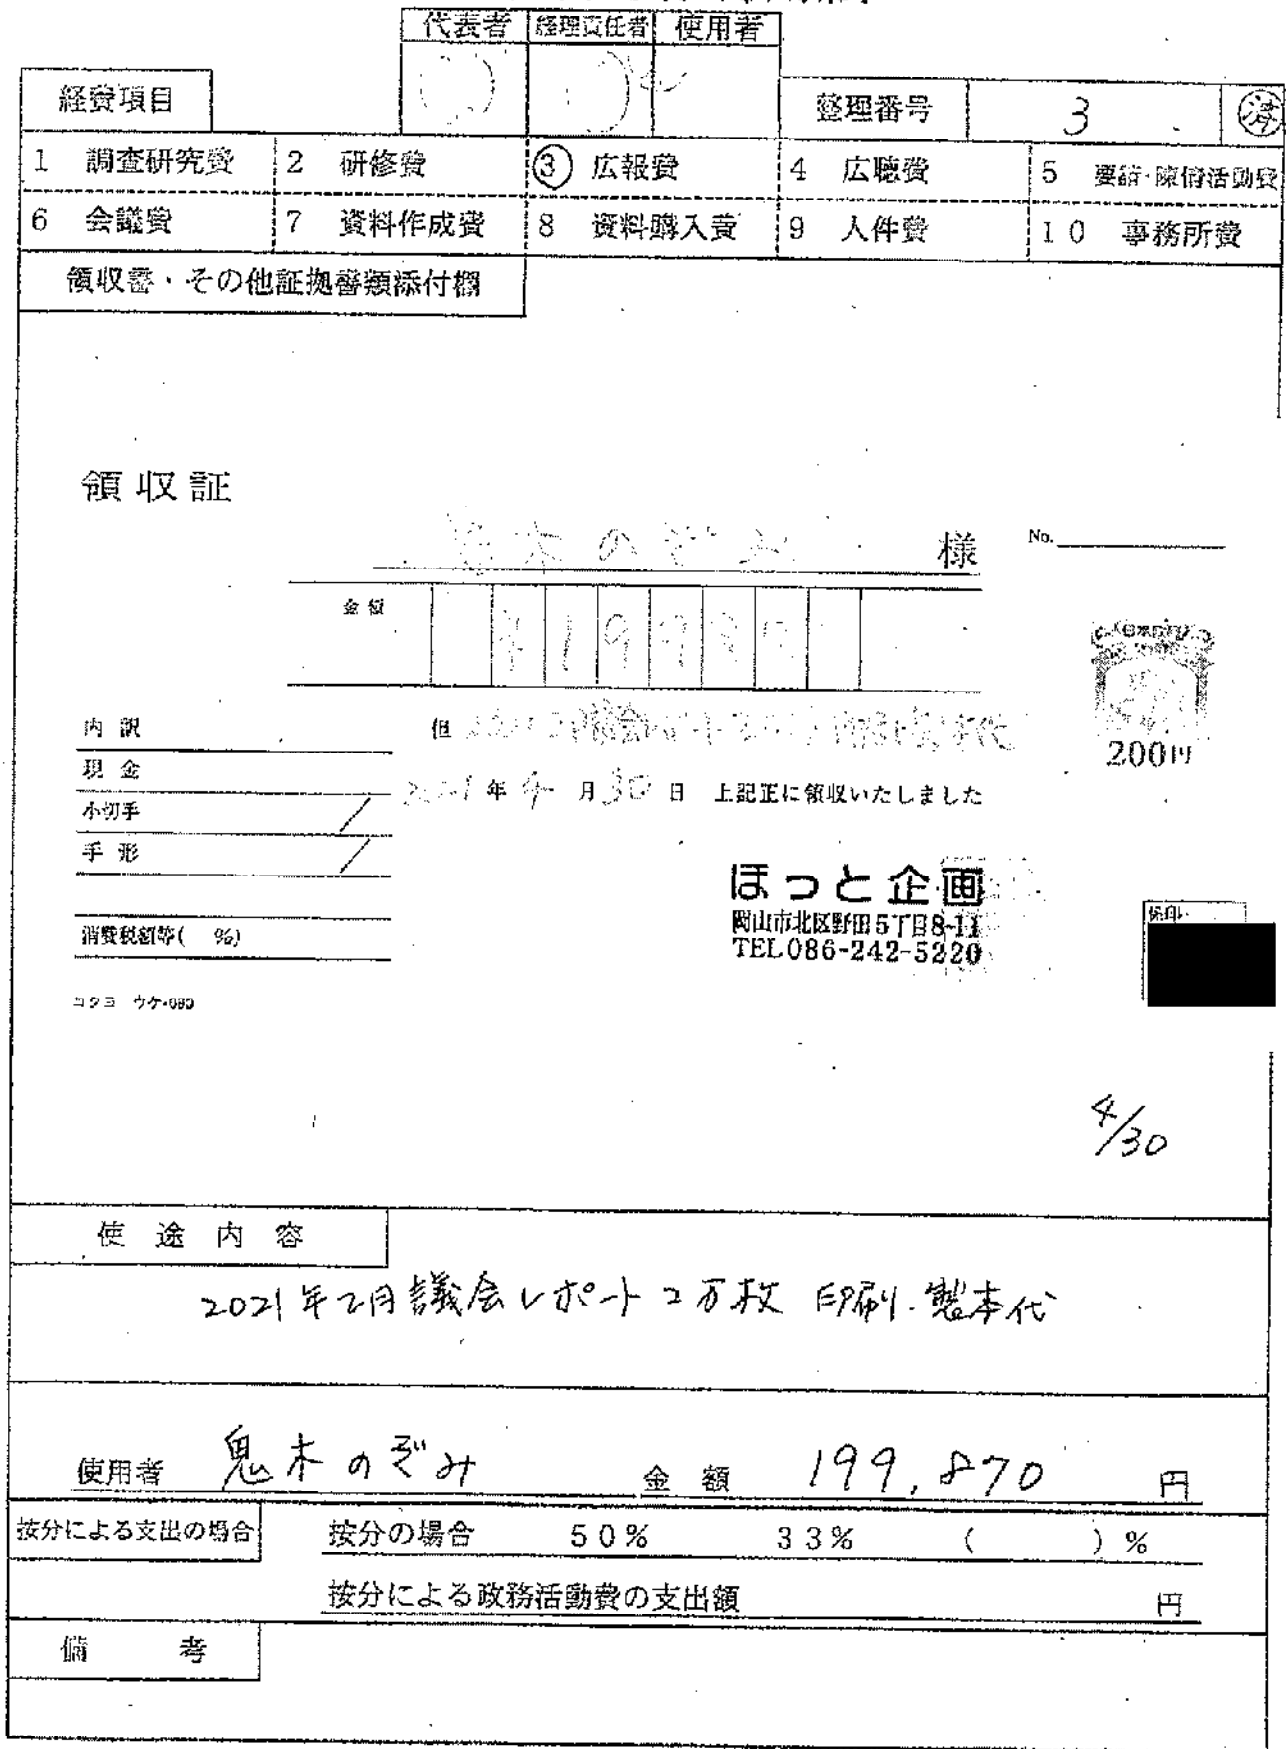 代表者 経理責任者 使用者
経費項目 整理番号 3 済
1 調査研究費 2 研修費 3 広報費 4 広聴費 5 要請・陳情活動費
6 会議費 7 資料作成費 8 資料購入費 9 人件費 10 事務所費
領収書・その他証拠書類添付欄
領収証
鬼木のぞみ 様 No.
金額
内訳 但
200円
現金
2021年4月30日 上記正に領収いたしました
小切手
手形
ほっと企画
岡山市北区野田5丁目8-11
TEL086-242-5220
係印
消費税額等( %)
コクヨ ウケ-
4/30
使途内容
2021年2月議会レポート2万枚 印刷・製本代
使用者 鬼木のぞみ 金額 199,870 円
按分による支出の場合 按分の場合 50% 33% ( )%
按分による政務活動費の支出額 円
備考